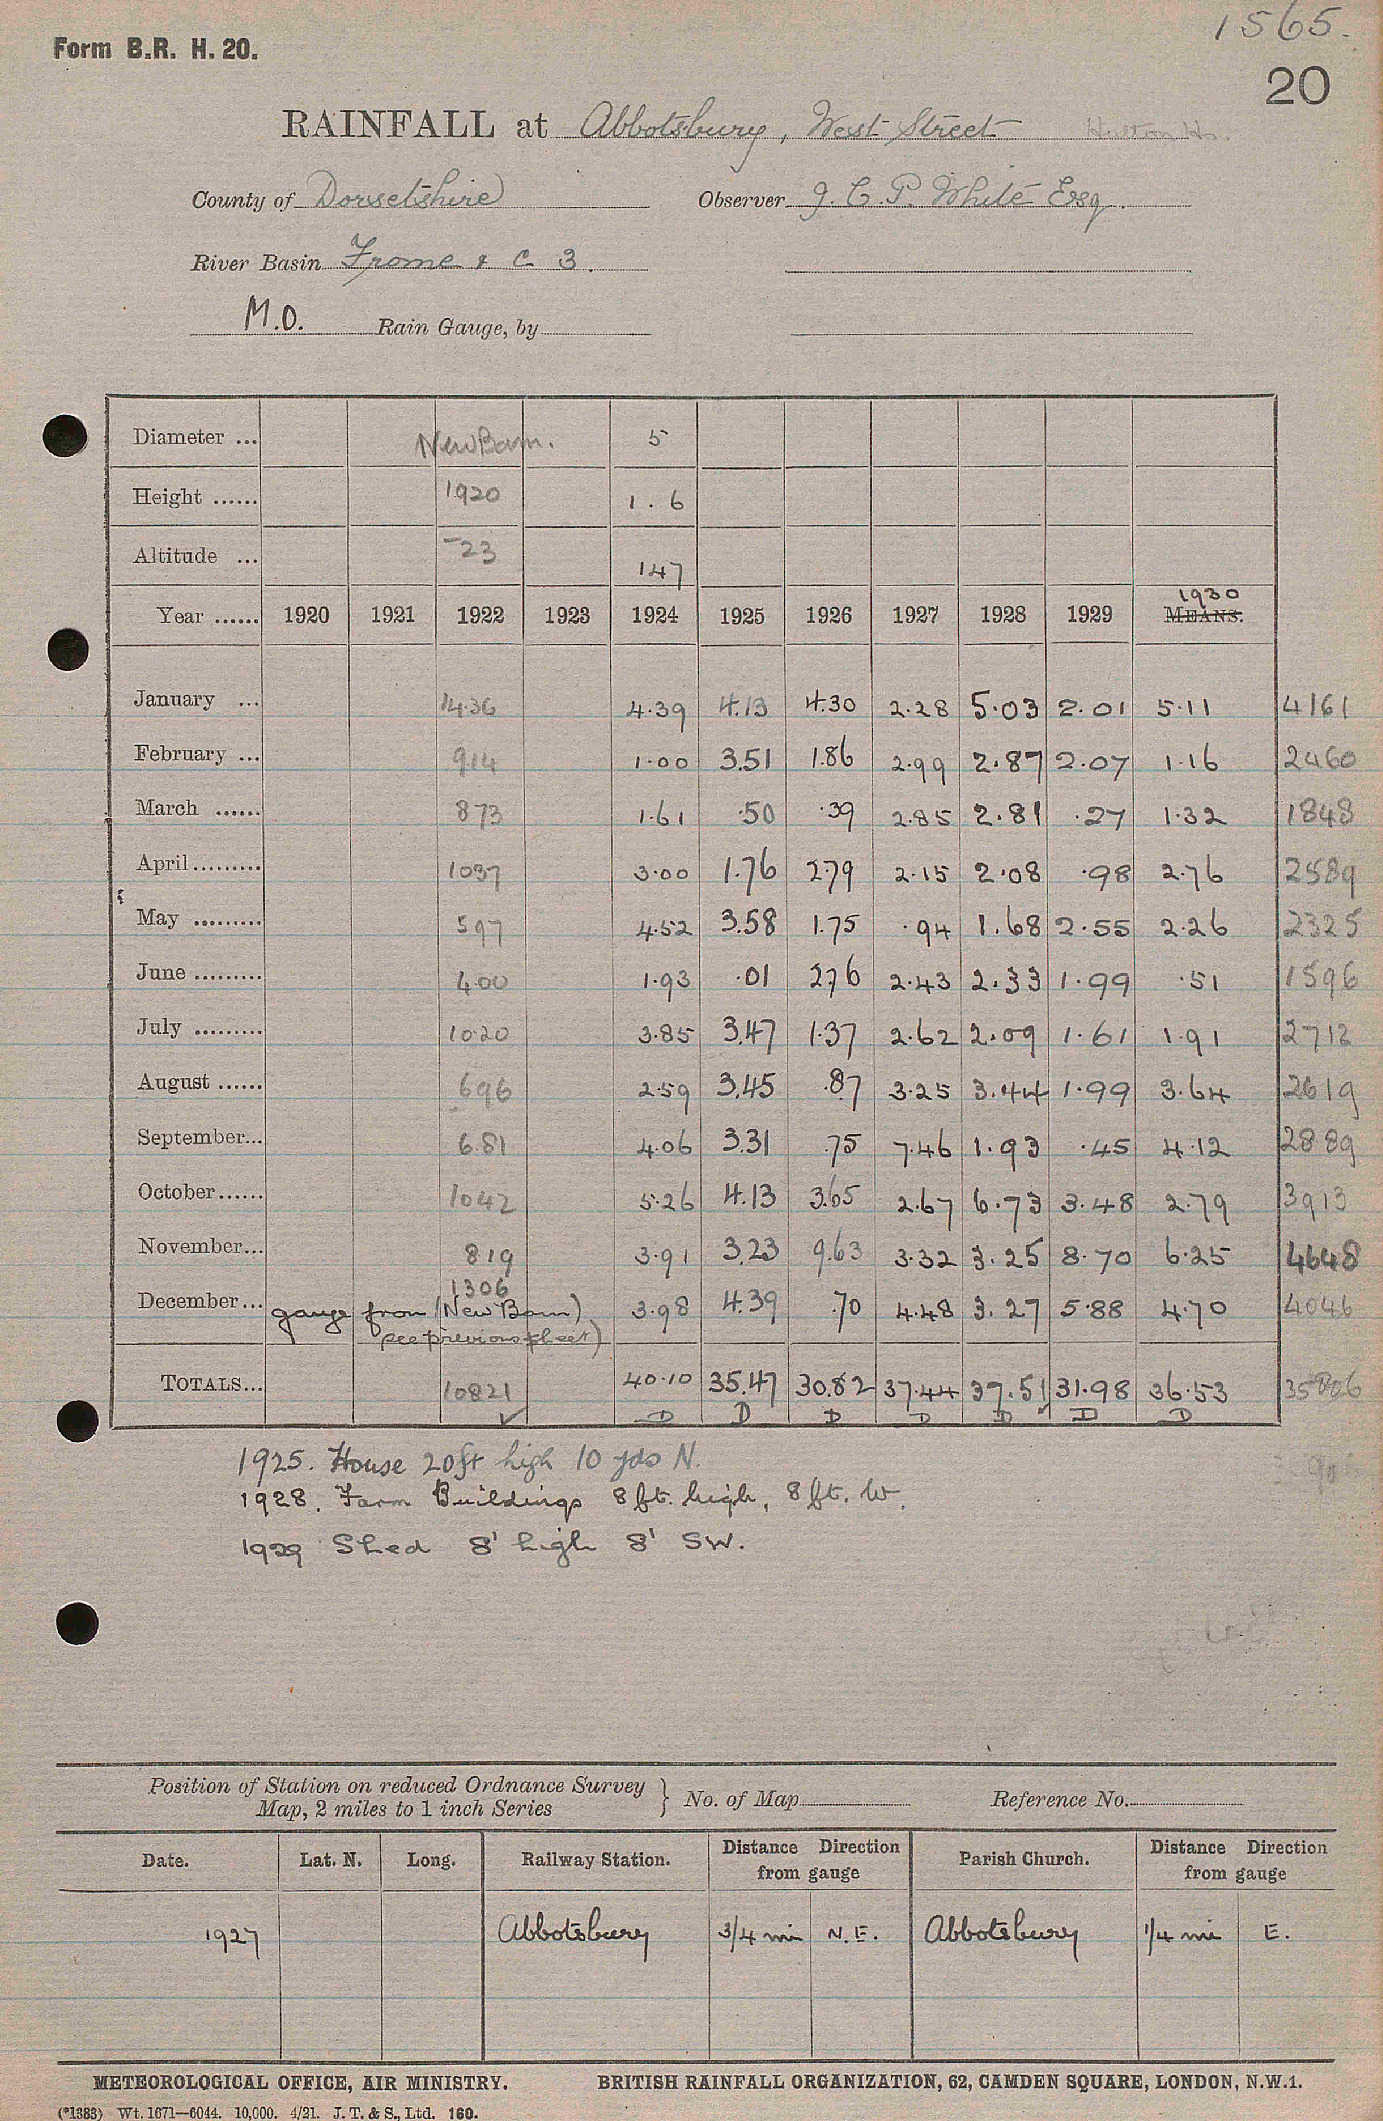 1565.
Form B.R. H. 20.
20
RAINFALL at Abbotsbury, West Street
County of Dorsetshire Observer J. C. P. White Esq.
River Basin Frome & C 3.
M.O. Rain Gauge, by
Diameter ... New Barn. 5
Height ...... 1920 1.6
Altitude ... -23 147
1930
Year ...... 1920 1921 1922 1923 1924 1925 1926 1927 1928 1929 MEANS.
January ... 14.36 4.39 4.13 4.30 2.28 5.03 2.01 5.11 4161
February ... 914 1.00 3.51 1.86 2.99 2.87 2.07 1.16 2460
March ...... 873 1.61 .50 .39 2.85 2.81 .27 1.32 1848
April ......... 1037 3.00 1.76 2.79 2.15 2.08 .98 2.76 2589
May ......... 597 4.52 3.58 1.75 .94 1.68 2.55 2.26 2325
June ......... 4.00 1.93 .01 2.76 2.43 2.33 1.99 .51 1596
July ......... 10.20 3.85 3.47 1.37 2.62 2.09 1.61 1.91 2712
August ...... 696 2.59 3.45 .87 3.25 3.44 1.99 3.64 2619
September... 6.81 4.06 3.31 .75 7.46 1.93 .45 4.12 2889
October...... 1042 5.26 4.13 3.65 2.67 6.73 3.48 2.79 3913
November... 819 3.91 3.23 9.63 3.32 3.25 8.70 6.25 4648
1306
December... gauge from (New Barn) 3.98 4.39 .70 4.48 3.27 5.88 4.70 4046
see previous sheet)
TOTALS... 10821 40.10 35.47 30.82 37.44 37.51 31.98 36.53
D D D D D D D
1925. House 20ft high 10 yds N.
1928. Farm Buildings 8 ft. high, 8 ft. W.
1929 Shed 8' high 8' SW.
Position of Station on reduced Ordnance Survey
Map, 2 miles to 1 inch Series } No. of Map Reference No.
Date. Lat. N. Long. Railway Station. Distance Direction from gauge Parish Church. Distance Direction from gauge
1927 Abbotsbury 3/4 mi N.E. Abbotsbury 1/4 mi E.
METEOROLOGICAL OFFICE, AIR MINISTRY. BRITISH RAINFALL ORGANIZATION, 62, CAMDEN SQUARE, LONDON, N.W.1.
(*1383) Wt. 1671—6044. 10,000. 4/21. J. T. & S., Ltd. 160.